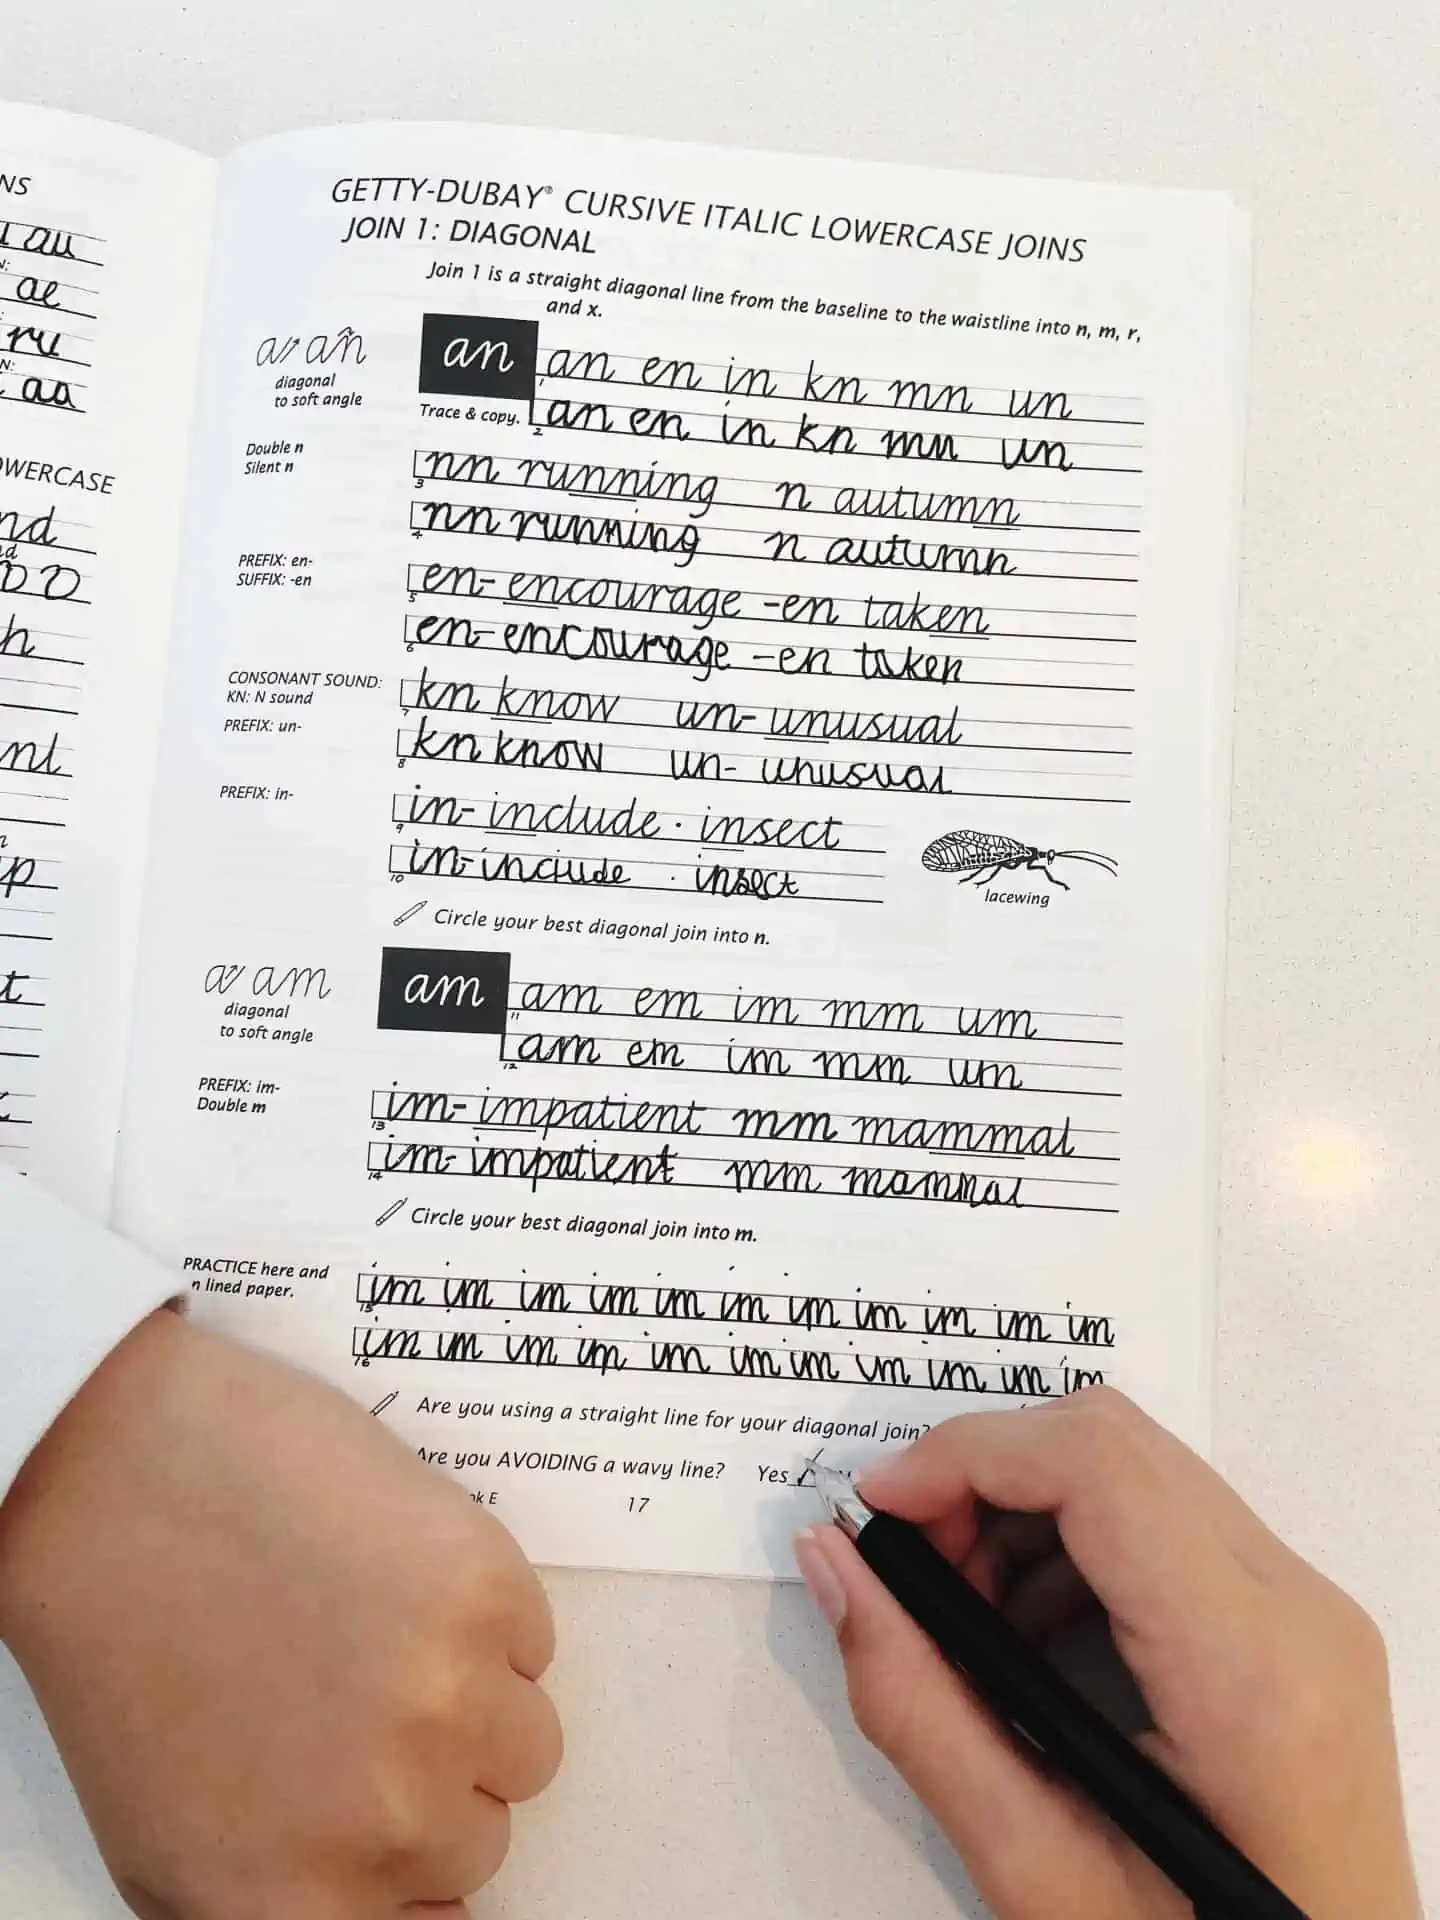 NS
au
ae
ru
aa
OWERCASE
nd
h
nt
p
t
GETTY-DUBAY® CURSIVE ITALIC LOWERCASE JOINS
JOIN 1: DIAGONAL
Join 1 is a straight diagonal line from the baseline to the waistline into n, m, r,
and x.
an
diagonal
to soft angle
an
1 an en in kn mn un
Trace & copy.
2 an en in kn mn un
Double n
Silent n
3 nn running n autumn
4 nn running n autumn
PREFIX: en-
SUFFIX: -en
5 en- encourage -en taken
6 en- encourage -en taken
CONSONANT SOUND:
KN: N sound
7 kn know un- unusual
PREFIX: un-
8 kn know un- unusual
PREFIX: in-
9 in- include · insect
10 in- include · insect
lacewing
Circle your best diagonal join into n.
a am
diagonal
to soft angle
am
11 am em im mm um
12 am em im mm um
PREFIX: im-
Double m
13 im- impatient mm mammal
14 im- impatient mm mammal
Circle your best diagonal join into m.
PRACTICE here and
n lined paper.
15 im im im im im im im im im im im
16 im im im im im im im im im im im
Are you using a straight line for your diagonal join?
Are you AVOIDING a wavy line? Yes
ok E 17